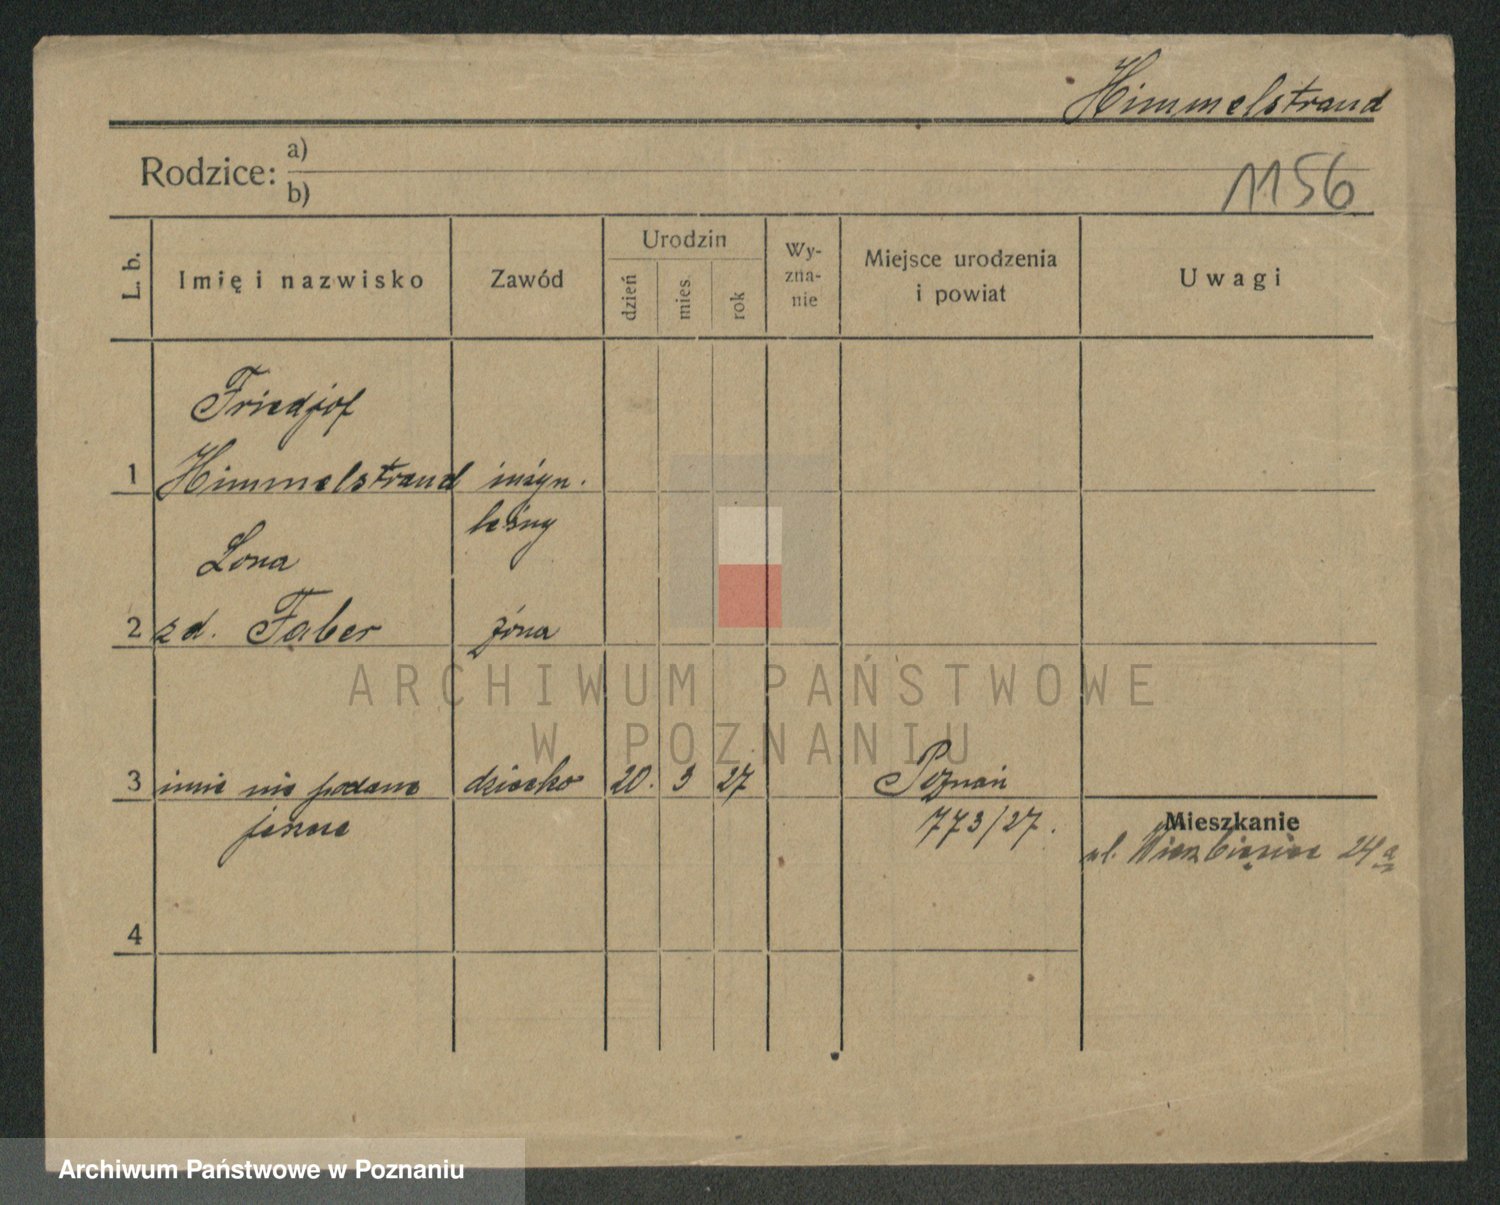 Himmelstrand
Rodzice: a)
b)
1156
L. b.
Imię i nazwisko
Zawód
Urodzin
dzień
mies.
rok
Wy-
zna-
nie
Miejsce urodzenia
i powiat
Uwagi
Friedjof
1 Himmelstrand inżyn.
leśny
Lona
2 zd. Faber żona
3 imię nie podane dziecko 20. 3 27 Poznań
jeszcze 773/27.
Mieszkanie
ul. Wierzbięcice 24a
4
ARCHIWUM PAŃSTWOWE
W POZNANIU
Archiwum Państwowe w Poznaniu